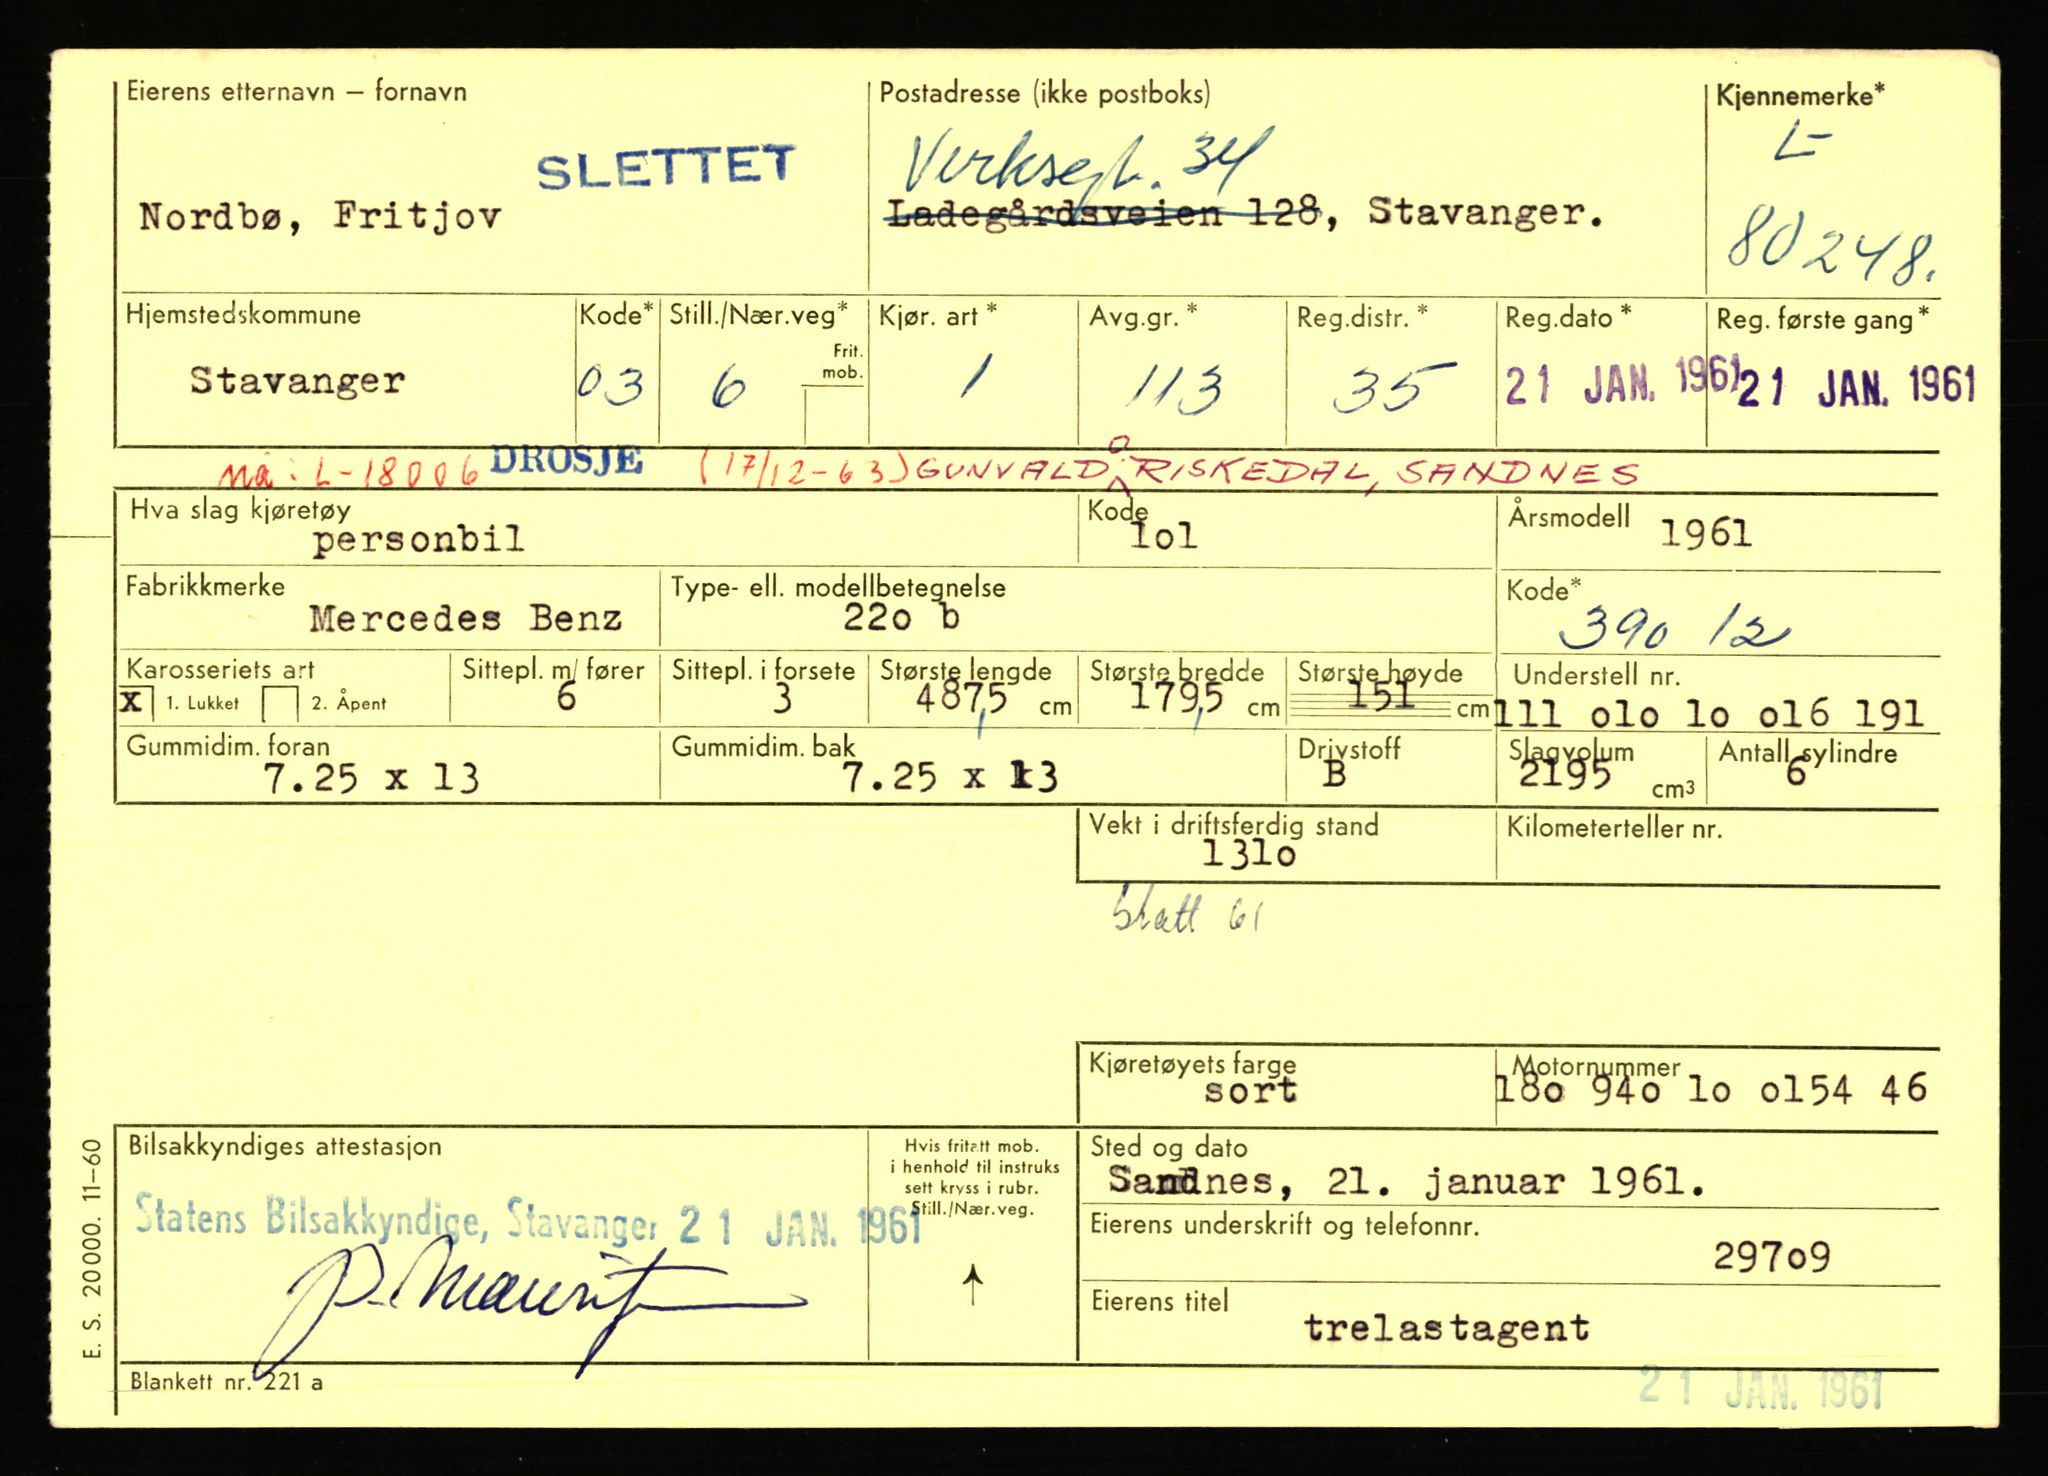 Eierens etternavn – fornavn
Postadresse (ikke postboks)
Kjennemerke*
SLETTET
Verksgt. 34
L-
Nordbø, Fritjov
Ladegårdsveien 128, Stavanger.
80248.
Hjemstedskommune
Kode*
Still./Nær.veg*
Frit. mob.
Kjør. art *
Avg.gr. *
Reg.distr. *
Reg.dato *
Reg. første gang*
Stavanger
03
6
1
113
35
21 JAN. 1961
21 JAN. 1961
nå: L-18006 DROSJE (17/12-63) GUNVALD Å. RISKEDAL, SANDNES
Hva slag kjøretøy
personbil
Kode
lol
Årsmodell
1961
Fabrikkmerke
Mercedes Benz
Type- ell. modellbetegnelse
22o b
Kode*
390 12
Karosseriets art
x 1. Lukket 2. Åpent
Sittepl. m/ fører
6
Sittepl. i forsete
3
Største lengde
487,5 cm
Største bredde
179,5 cm
Største høyde
151 cm
Understell nr.
111 olo lo o16 191
Gummidim. foran
7.25 x 13
Gummidim. bak
7.25 x 13
Drivstoff
B
Slagvolum
2195 cm³
Antall sylindre
6
Vekt i driftsferdig stand
131o
Kilometerteller nr.
61
Kjøretøyets farge
sort
Motornummer
18o 94o lo o154 46
Bilsakkyndiges attestasjon
Statens Bilsakkyndige, Stavanger 21 JAN. 1961
Hvis fritatt mob.
i henhold til instruks
sett kryss i rubr.
Still./Nær.veg.
Sted og dato
Sandnes, 21. januar 1961.
Eierens underskrift og telefonnr.
297o9
Eierens titel
trelastagent
E. S. 20000. 11–60
Blankett nr. 221 a
21 JAN. 1961